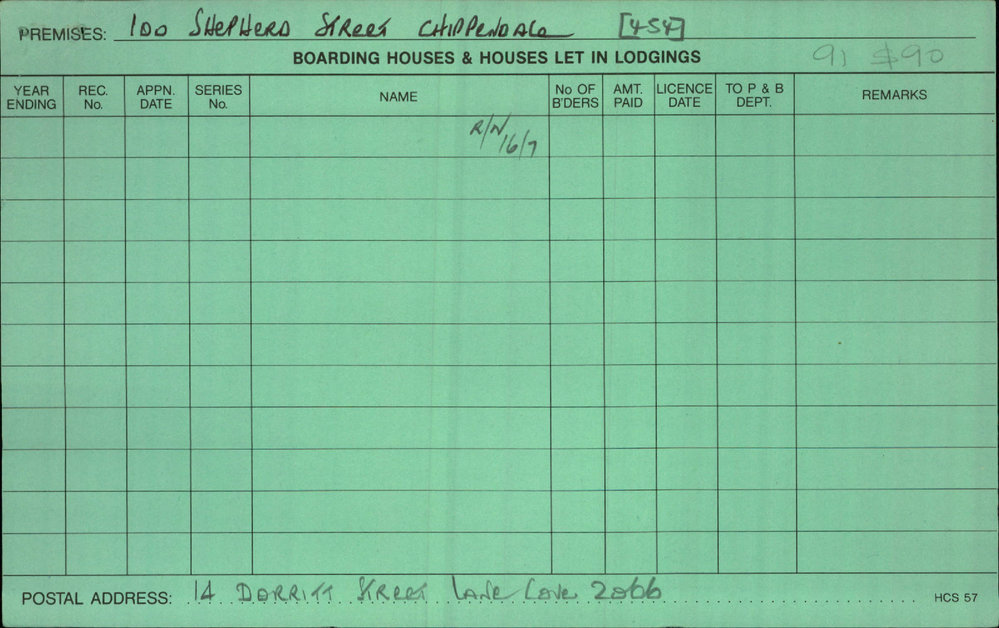 PREMISES: 100 SHEPHERD STREET CHIPPENDALE [454]
BOARDING HOUSES & HOUSES LET IN LODGINGS 91 $90
YEAR ENDING REC. No. APPN. DATE SERIES No. NAME No OF B'DERS AMT. PAID LICENCE DATE TO P & B DEPT. REMARKS
R/N 16/7
POSTAL ADDRESS: 14 DORRITT STREET LANE COVE 2066 HCS 57